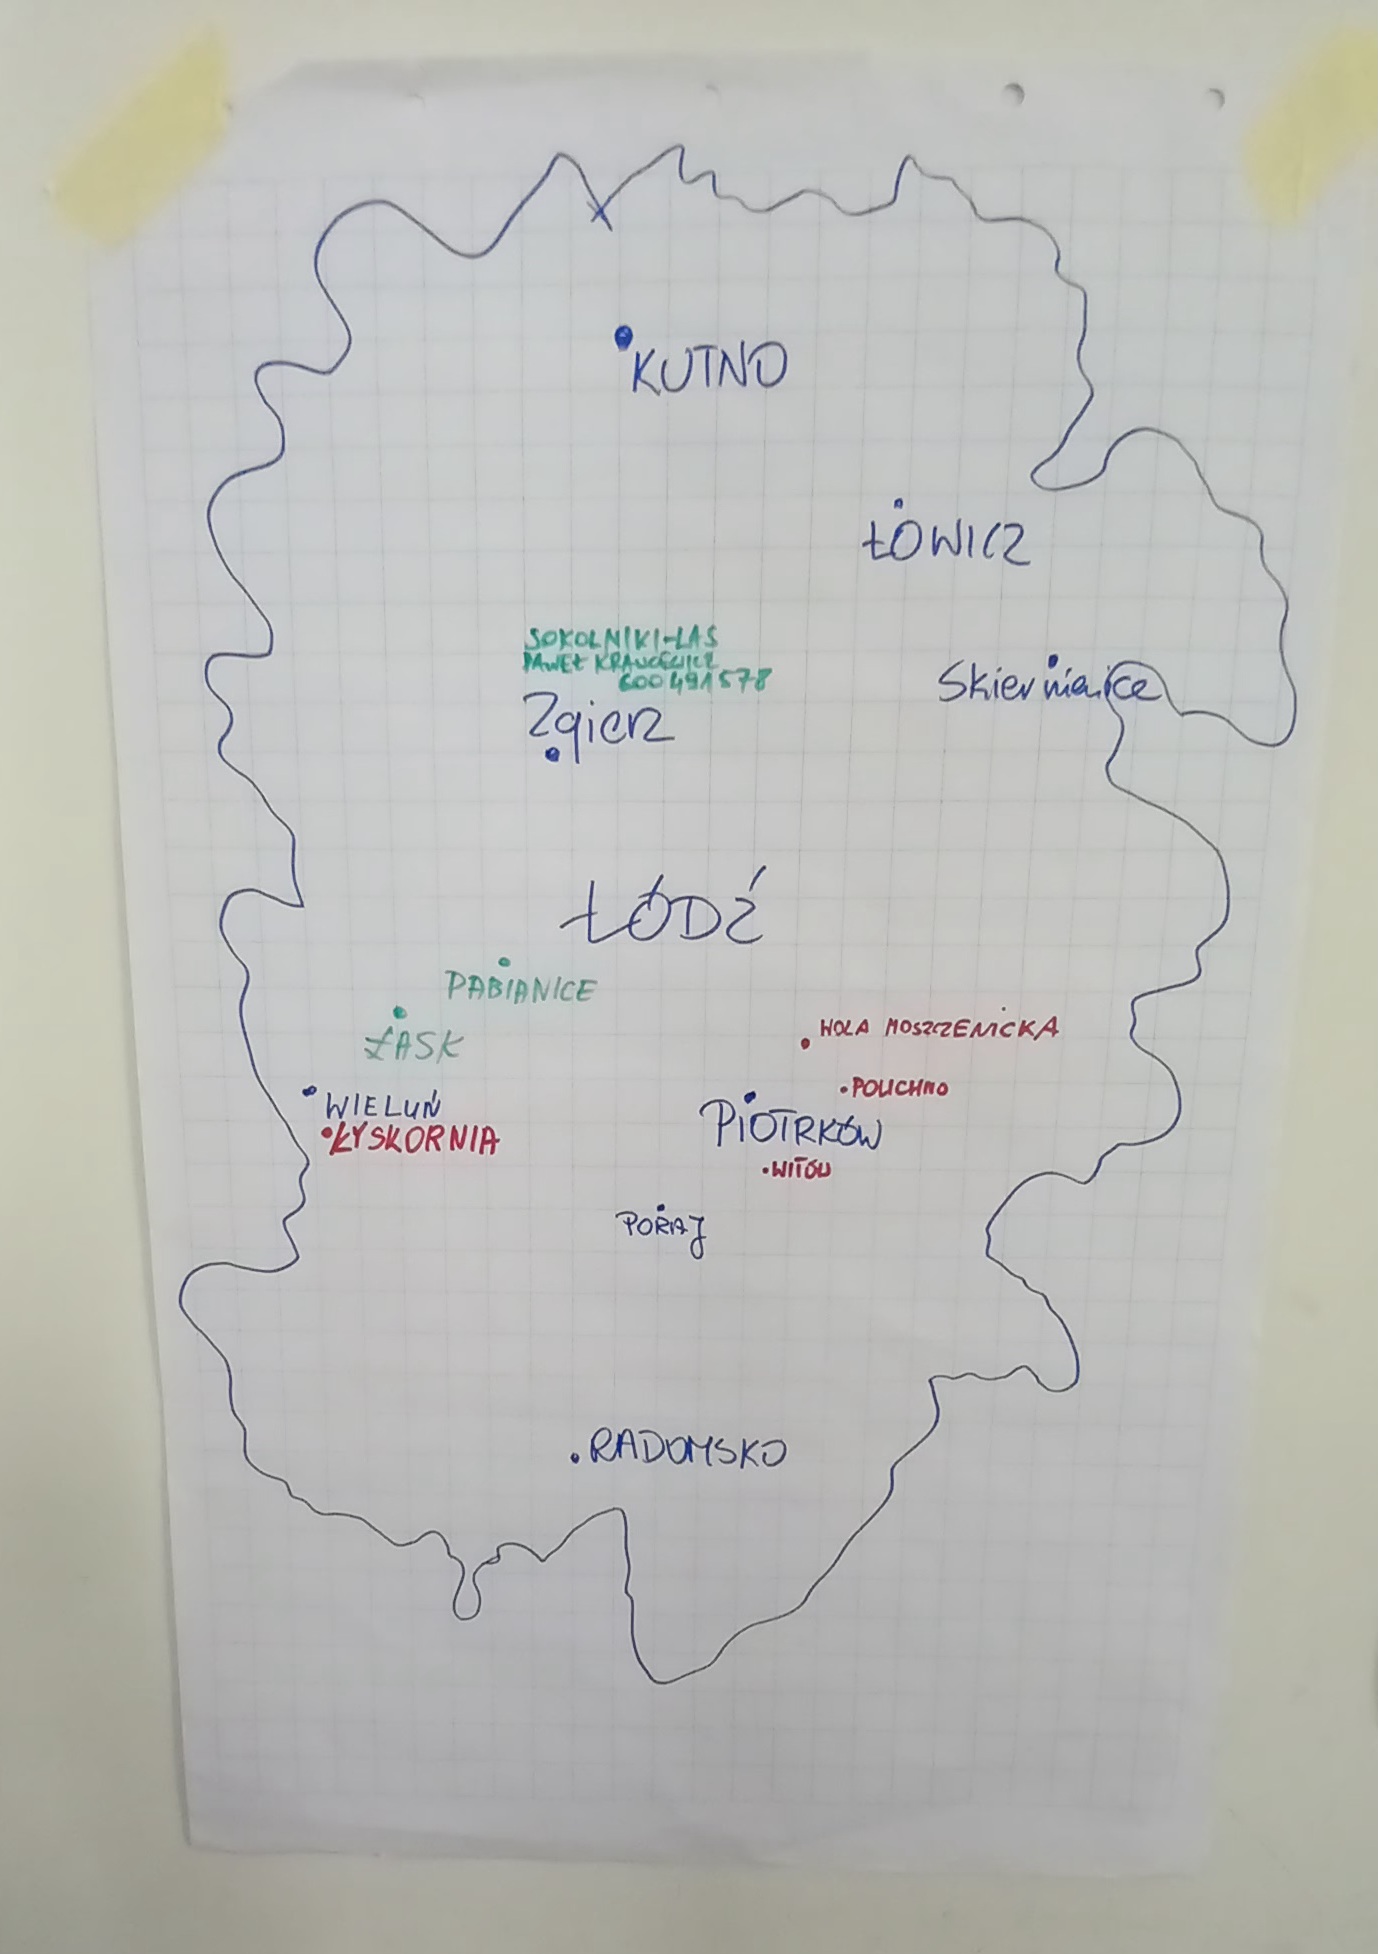 KUTNO
ŁOWICZ
SOKOLNIKI-LAS
PAWEŁ
600 491 578
Skierniewice
Zgierz
ŁÓDŹ
PABIANICE
WOLA MOSZCZENICKA
ŁASK
POLICHNO
WIELUŃ
PIOTRKÓW
ŁYSKORNIA
WITÓW
PORAJ
RADOMSKO